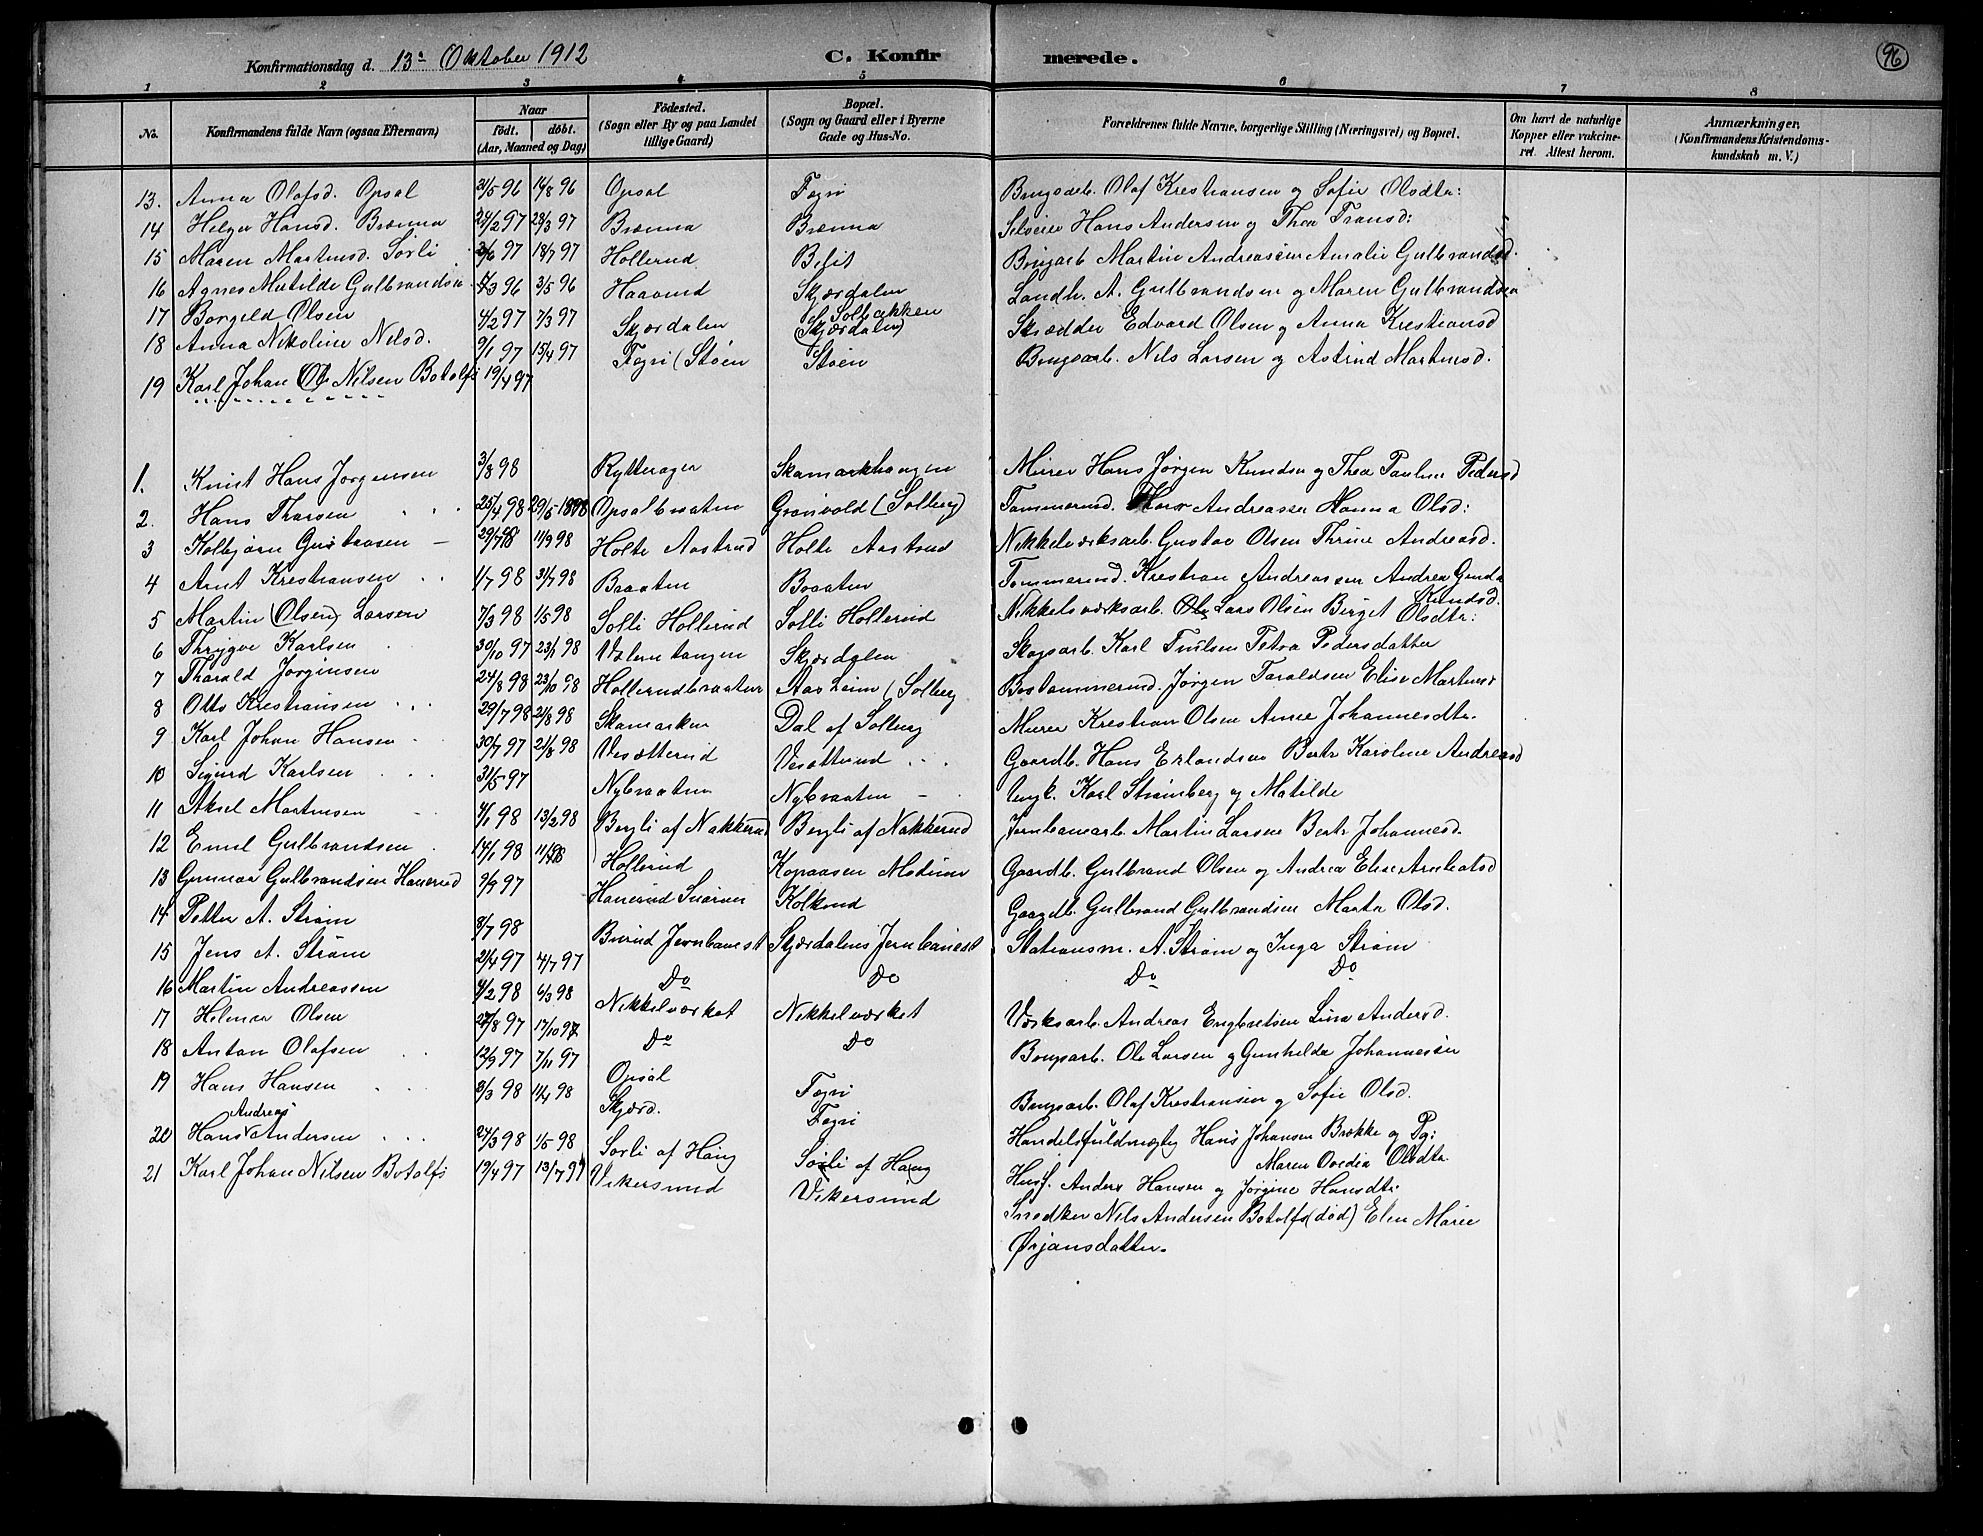 Konfirmationsdag d. 13de Oktober 1912 C. Konfirmerede. 96
1 2 3 4 5 6 7 8
No. Konfirmandens fulde Navn (ogsaa Efternavn) Naar født. døbt. (Aar, Maaned og Dag) Fødested. (Sogn eller By og paa Landet tillige Gaard) Bopæl. (Sogn og Gaard eller i Byerne Gade og Hus-No. Forældrenes fulde Navne, borgerlige Stilling (Næringsvei) og Bopæl. Om havt de naturlige Kopper eller vaccineret. Attest herom. Anmærkninger, (Konfirmandens Kristendomskundskab m. V.)
13. Anna Olafsd. Opsal 21/5 96 16/8 96 Opsal Fegri Brugsarb. Olaf Kristiansen og Sofie Olsdtr:
14 Helga Hansd. Brænna 24/2 97 28/3 97 Brænna Brænna Selveier Hans Andersen og Thea Fransd:
15 Maren Martinsd. Sørli 2/6 97 18/7 97 Hollerud Brugarb Martin Andreassen Amalie Gulbrandsd.
16 Agnes Matilde Gulbrandsen 3 96 3/5 96 Haavrud Skjærdalen Landh. A. Gulbrandsen og Maren Gulbrandsen
17 Borgeld Olsen 4/2 97 7/3 97 Skjærdalen Solbakken (Skjærdalen) Skrædder Edvard Olsen og Anna Krestiansd
18 Anna Nikoline Nilsd. 9/1 97 15/4 97 Fegri (Støen Støen Brugsarb. Nils Larsen og Astrid Martinsd.
19 Karl Johan Nilsen Botolfs 19/4 97
1. Knut Hans Jørgensen 3/8 98 Rytterager Skamarkhaugen Murer Hans Jørgen Knudsen og Thea Pauline Pedersd
2. Hans Thorsen 25/4 98 29/5 1898 Opsalbraaten Grønvold (Solberg) Tømmermd. Thor Andreassen Hanna Olsd:
3 Kolbjørn Gustavsen 29/7 98 11/9 98 Holte Aastrud Holte Aastrud Nikkelværksarb. Gustav Olsen Thrine Andreasd.
4 Arnt Krestiansen 1/7 98 31/7 98 Braaten Braaten Tømmermd. Krestian Andreassen Andrea Gunda Knudsd.
5 Martin (Olsen) Larsen 7/3 98 1/5 98 Solli Hollerud Solli Hollerud Nikkelsværksarb. Lars Olsen Berget Olsdtr:
6 Thrygve Karlsen 30/10 97 23/1 98 Skjærdalen Skogsarb. Karl Petra Pedersdatter
7 Tharald Jørginsen 24/8 98 23/10 98 Hollerudbraaten Aasheim (Solberg Jørgen Taraldsen Elise Martinsd
8 Otto Krestiansen 29/7 98 21/8 98 Skamarken Dal af Solberg Murer Krestian Olsen Anne Johannesdtr.
9 Karl Johan Hansen 30/7 97 21/8 98 Vesætterud Vesætterud Gaardb. Hans Erlandsen Berte Karoline Andreasd
10 Sigurd Karlsen 31/5 97 Nybraaten Nybraaten Karl Strømberg og Matilde
11 Aksel Martinsen 4/1 98 13/2 98 Bergli af Nakkerud Bergli af Nakkerud Jernbanearb. Martin Larsen Berte Johannesd.
12 Emil Gulbrandsen 14/1 98 11/4 98 Hollerud Kopaasen Modum Gaardb. Gulbrand Olsen og Andrea Elise
13 Gunnar Gulbrandsen Hanerud 9/9 97 Hanerud Snarum Kolkerud Gaardb. Gulbrand Gulbrandsen Marta Olsd.
14 Petter A. Strøm 3/7 98 Burud Jernbanest Skjærdalens Jernbanest Stationsm. A. Strøm og Inga Strøm
15 Jens A. Strøm 21/4 97 4/7 97 Do Do Do Do
16 Martin Andreassen 4/2 98 6/3 98 Nikkelværket Nikkelværket Værksarb. Andreas Engbretsen Lina Andersd.
17 Hilmar Olsen 27/8 97 17/10 97 Do Do Brugsarb. Ole Larsen og Gunhilda Johannessen
18 Anton Olafsen 12/9 97 7/11 97 Opsal Fegri Brugsarb. Olaf Krestiansen og Sofie Olsd.
19 Hans Hansen 3/3 98 11/4 98 Skjærd. Fegri Handelsfuldmægtig Hans Johansen Brække og Pg: Maren Ovedia Olsdtr.
20 Hans Andreas Andersen 27/3 98 1/5 98 Sørli af Haug Sørli af Haug Husf. Anders Hansen og Jørgine Hansdtr.
21 Karl Johan Nilsen Botolfs 19/4 97 13/7 97 Vikersund Vikersund Snedker Nils Andersen Botolfs (død) Elen Marie
Ørjansdatter.